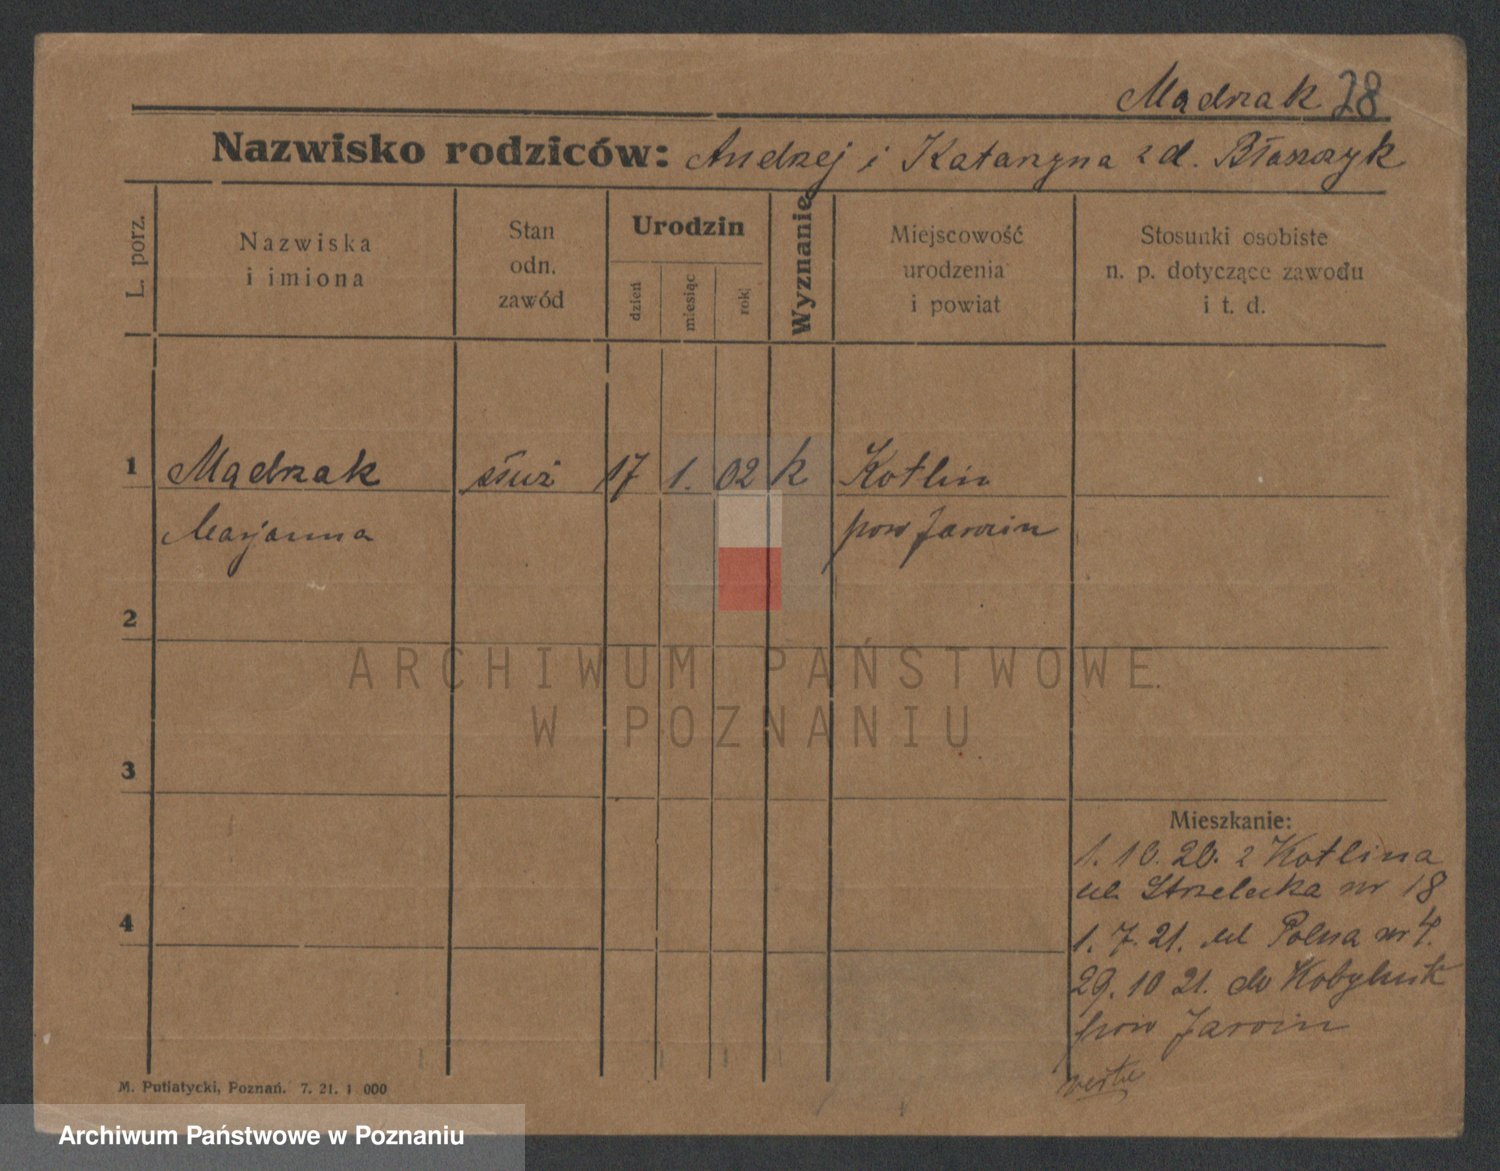 Mądrzak 28
Nazwisko rodziców: Andrzej i Katarzyna z d. Błaszczyk
L. porz.
Nazwiska
i imiona
Stan
odn.
zawód
Urodzin
dzień
miesiąc
rok
Wyznanie
Miejscowość
urodzenia
i powiat
Stosunki osobiste
n. p. dotyczące zawodu
i t. d.
1 Mądrzak służ 17 1. 02 k Kotlin
Marjanna pow Jarocin
2
ARCHIWUM PAŃSTWOWE
W POZNANIU
3
Mieszkanie:
1. 10. 20. z Kotlina
ul. Strzelecka nr 18
4
1. 7. 21. ul Polna nr 4.
29. 10 21. do
pow Jarocin
verte
M. Putiatycki, Poznań. 7. 21. 1 000
Archiwum Państwowe w Poznaniu